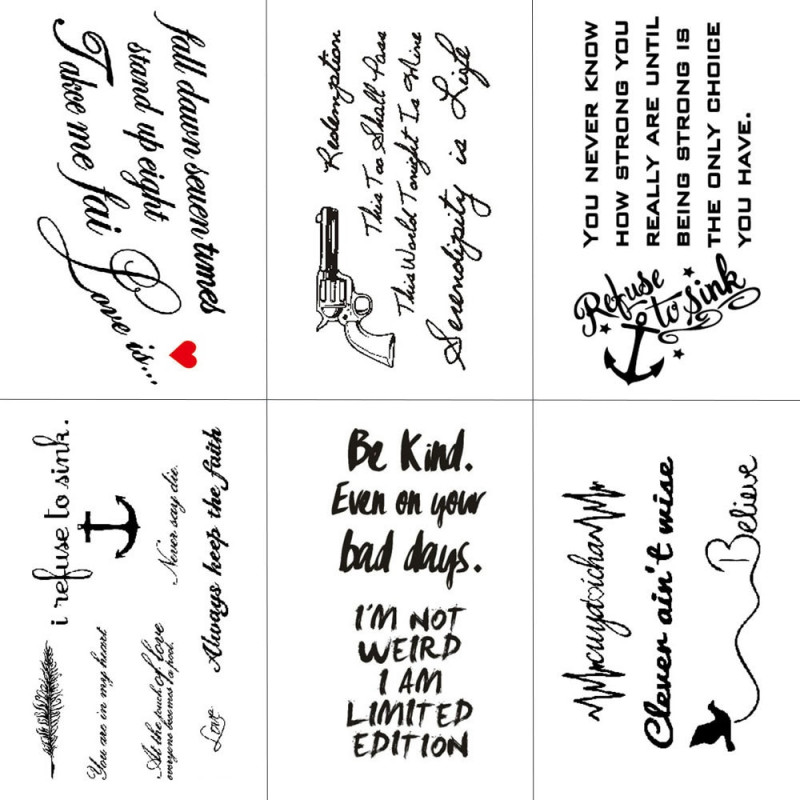 fall dawn seven times
stand up eight
Takee me fai
Love is...
Redemption
This Too Shall Pass
This World Tonight Is Mine
Serendipity is Life
YOU NEVER KNOW
HOW STRONG YOU
REALLY ARE UNTIL
BEING STRONG IS
THE ONLY CHOICE
YOU HAVE.
Refuse
to sink
i refuse to sink.
You are in my heart
Never say die.
At the touch of love
everyone becomes to poet.
Love
Always keep the faith
Be Kind.
Even on your
bad days.
I'M NOT
WEIRD
I AM
LIMITED
EDITION
Clever ain't wise
Believe